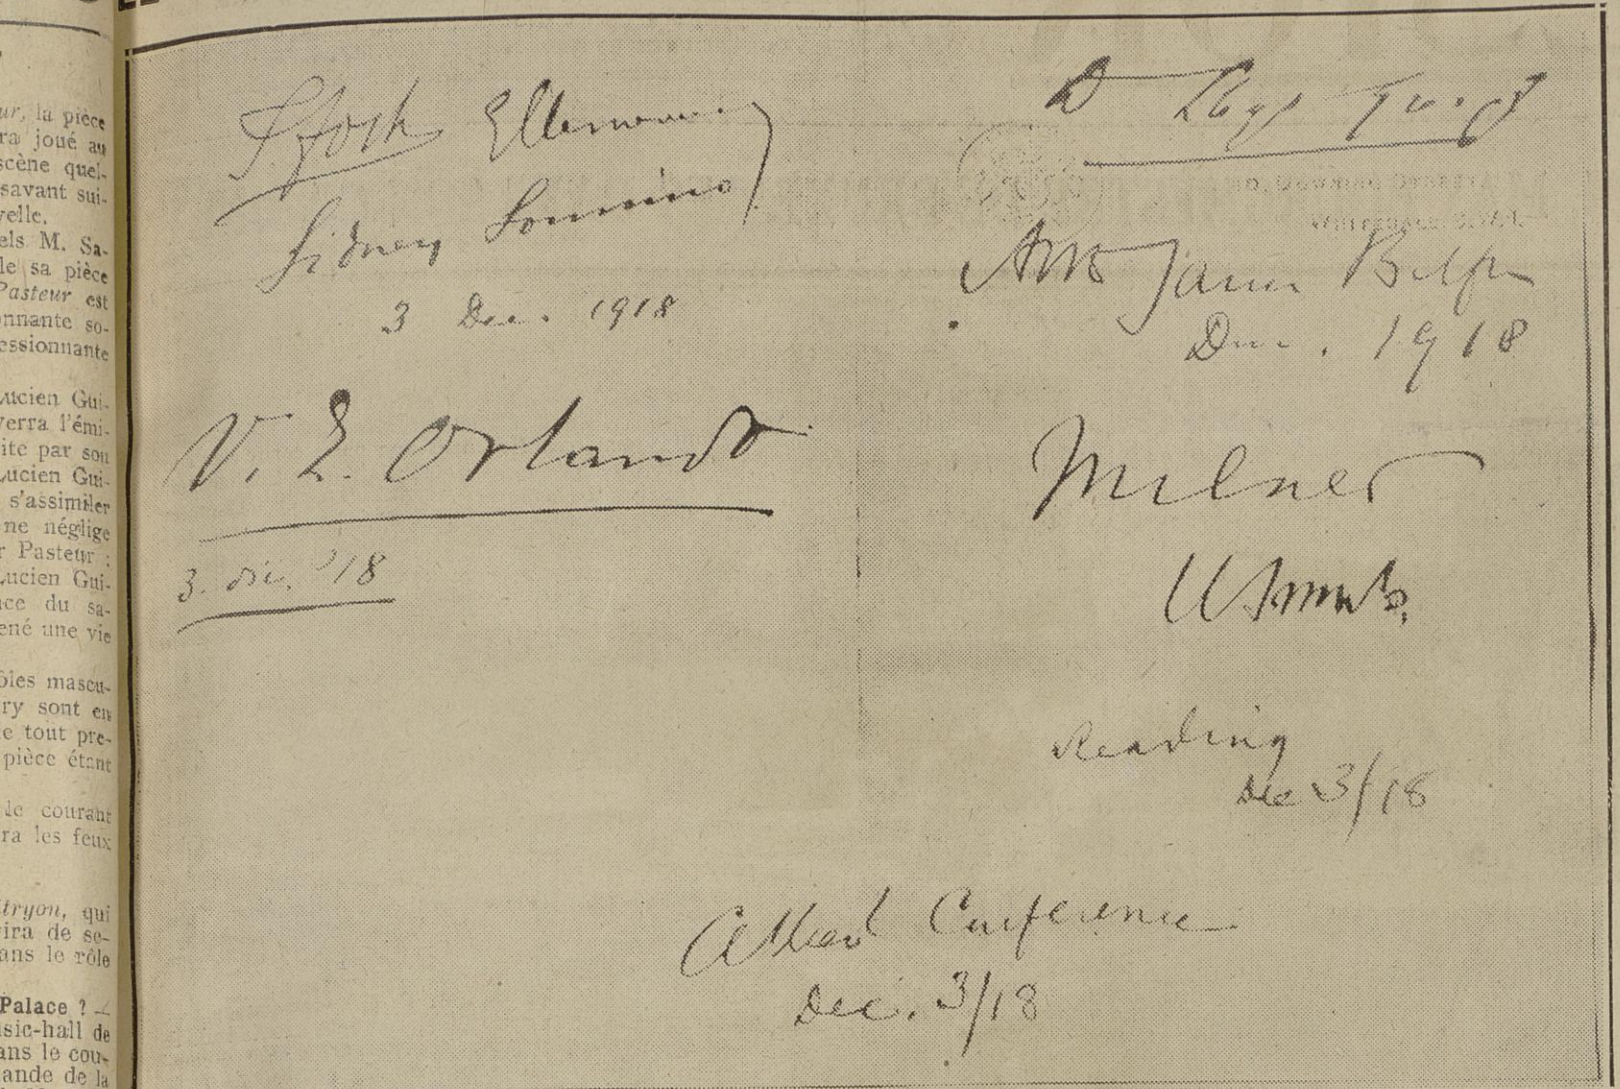 ur, la pièce
ra joué au
scène quel-
savant sui-
velle.
els M. Sa-
le sa pièce
Pasteur est
onnante so-
essionnante
Lucien Gui-
verra l'émi-
ite par son
Lucien Gui-
s'assimiler
ne néglige
r Pasteur :
Lucien Gui-
nce du sa-
ené une vie
ôles mascu-
ry sont en
e tout pre-
pièce étant
le courant
ra les feux
tryon, qui
ira de se-
ans le rôle
Palace ? —
sic-hall de
ans le cou-
ande de la
F. Foch
Sidney Sonnino
3 Dec. 1918
V. E. Orlando
3. dic. '18
D Lloyd George
10, Downing Street,
Whitehall, S.W.1.
Arthur James Balfour
Dec. 1918
Milner
Reading
Dec 3/18
Allied Conference
Dec. 3/18